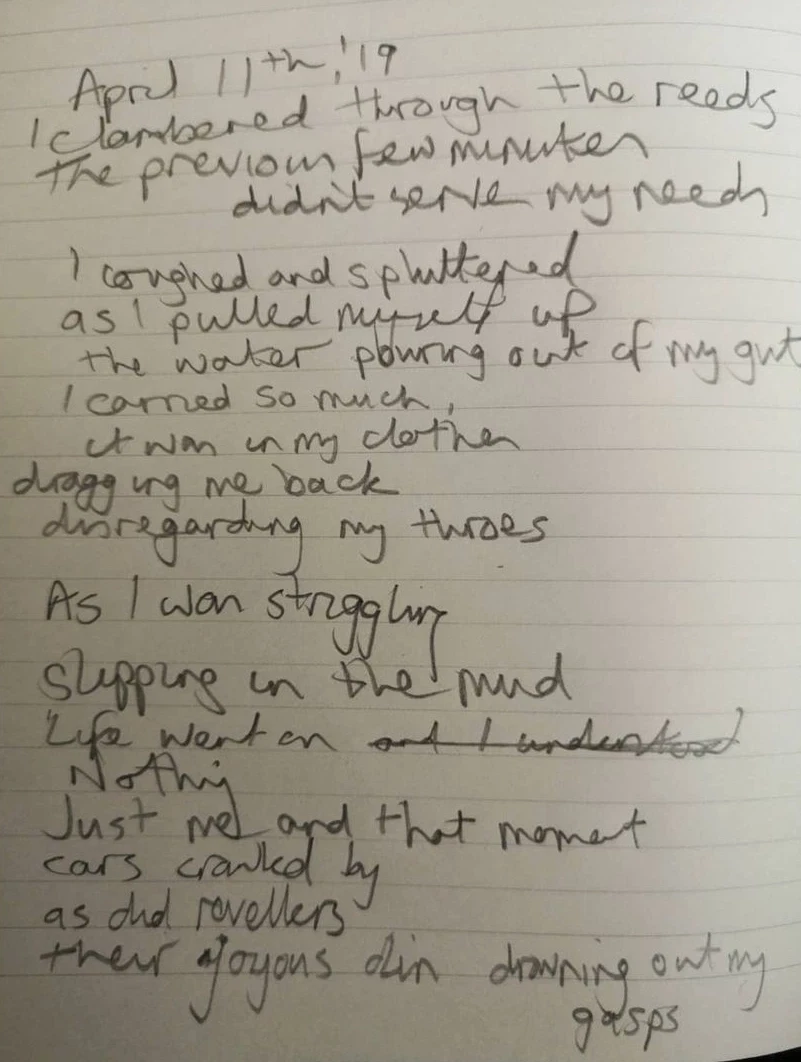 April 11th, '19
I clambered through the reeds
the previous few minutes
didn't serve my needs
I coughed and spluttered
as I pulled myself up
the water pouring out of my gut
I carried so much,
it was in my clothes
dragging me back
disregarding my throes
As I was struggling
slipping in the mud
Life went on and I understood
Nothing
Just me and that moment
cars crawled by
as did revellers
their joyous din drowning out my
gasps